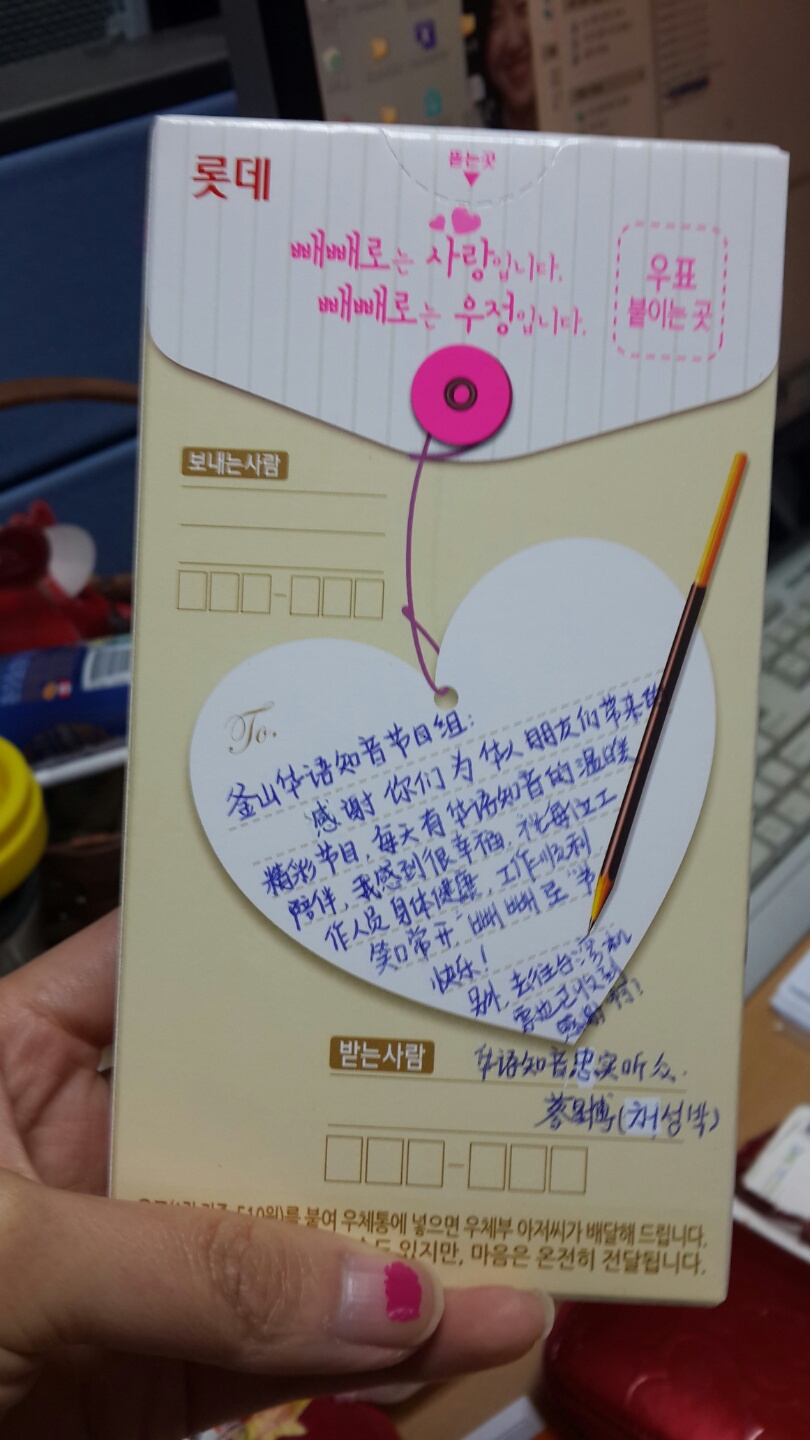 롯데
뜯는곳
빼빼로는 사랑입니다.
빼빼로는 우정입니다.
우표
붙이는 곳
보내는사람
To.
釜山华语知音节目组:
感谢你们为华人朋友们带来的
精彩节目,每天有华语知音的温暖
陪伴,我感到很幸福,祝每位工
作人员身体健康,工作顺利
笑口常开"啪啪 节
快乐!
另外,去往台湾机
票也已收到
感谢
받는사람
华语知音忠实听众.
510원)를 붙여 우체통에 넣으면 우체부 아저씨가 배달해 드립니다.
있지만, 마음은 온전히 전달됩니다.